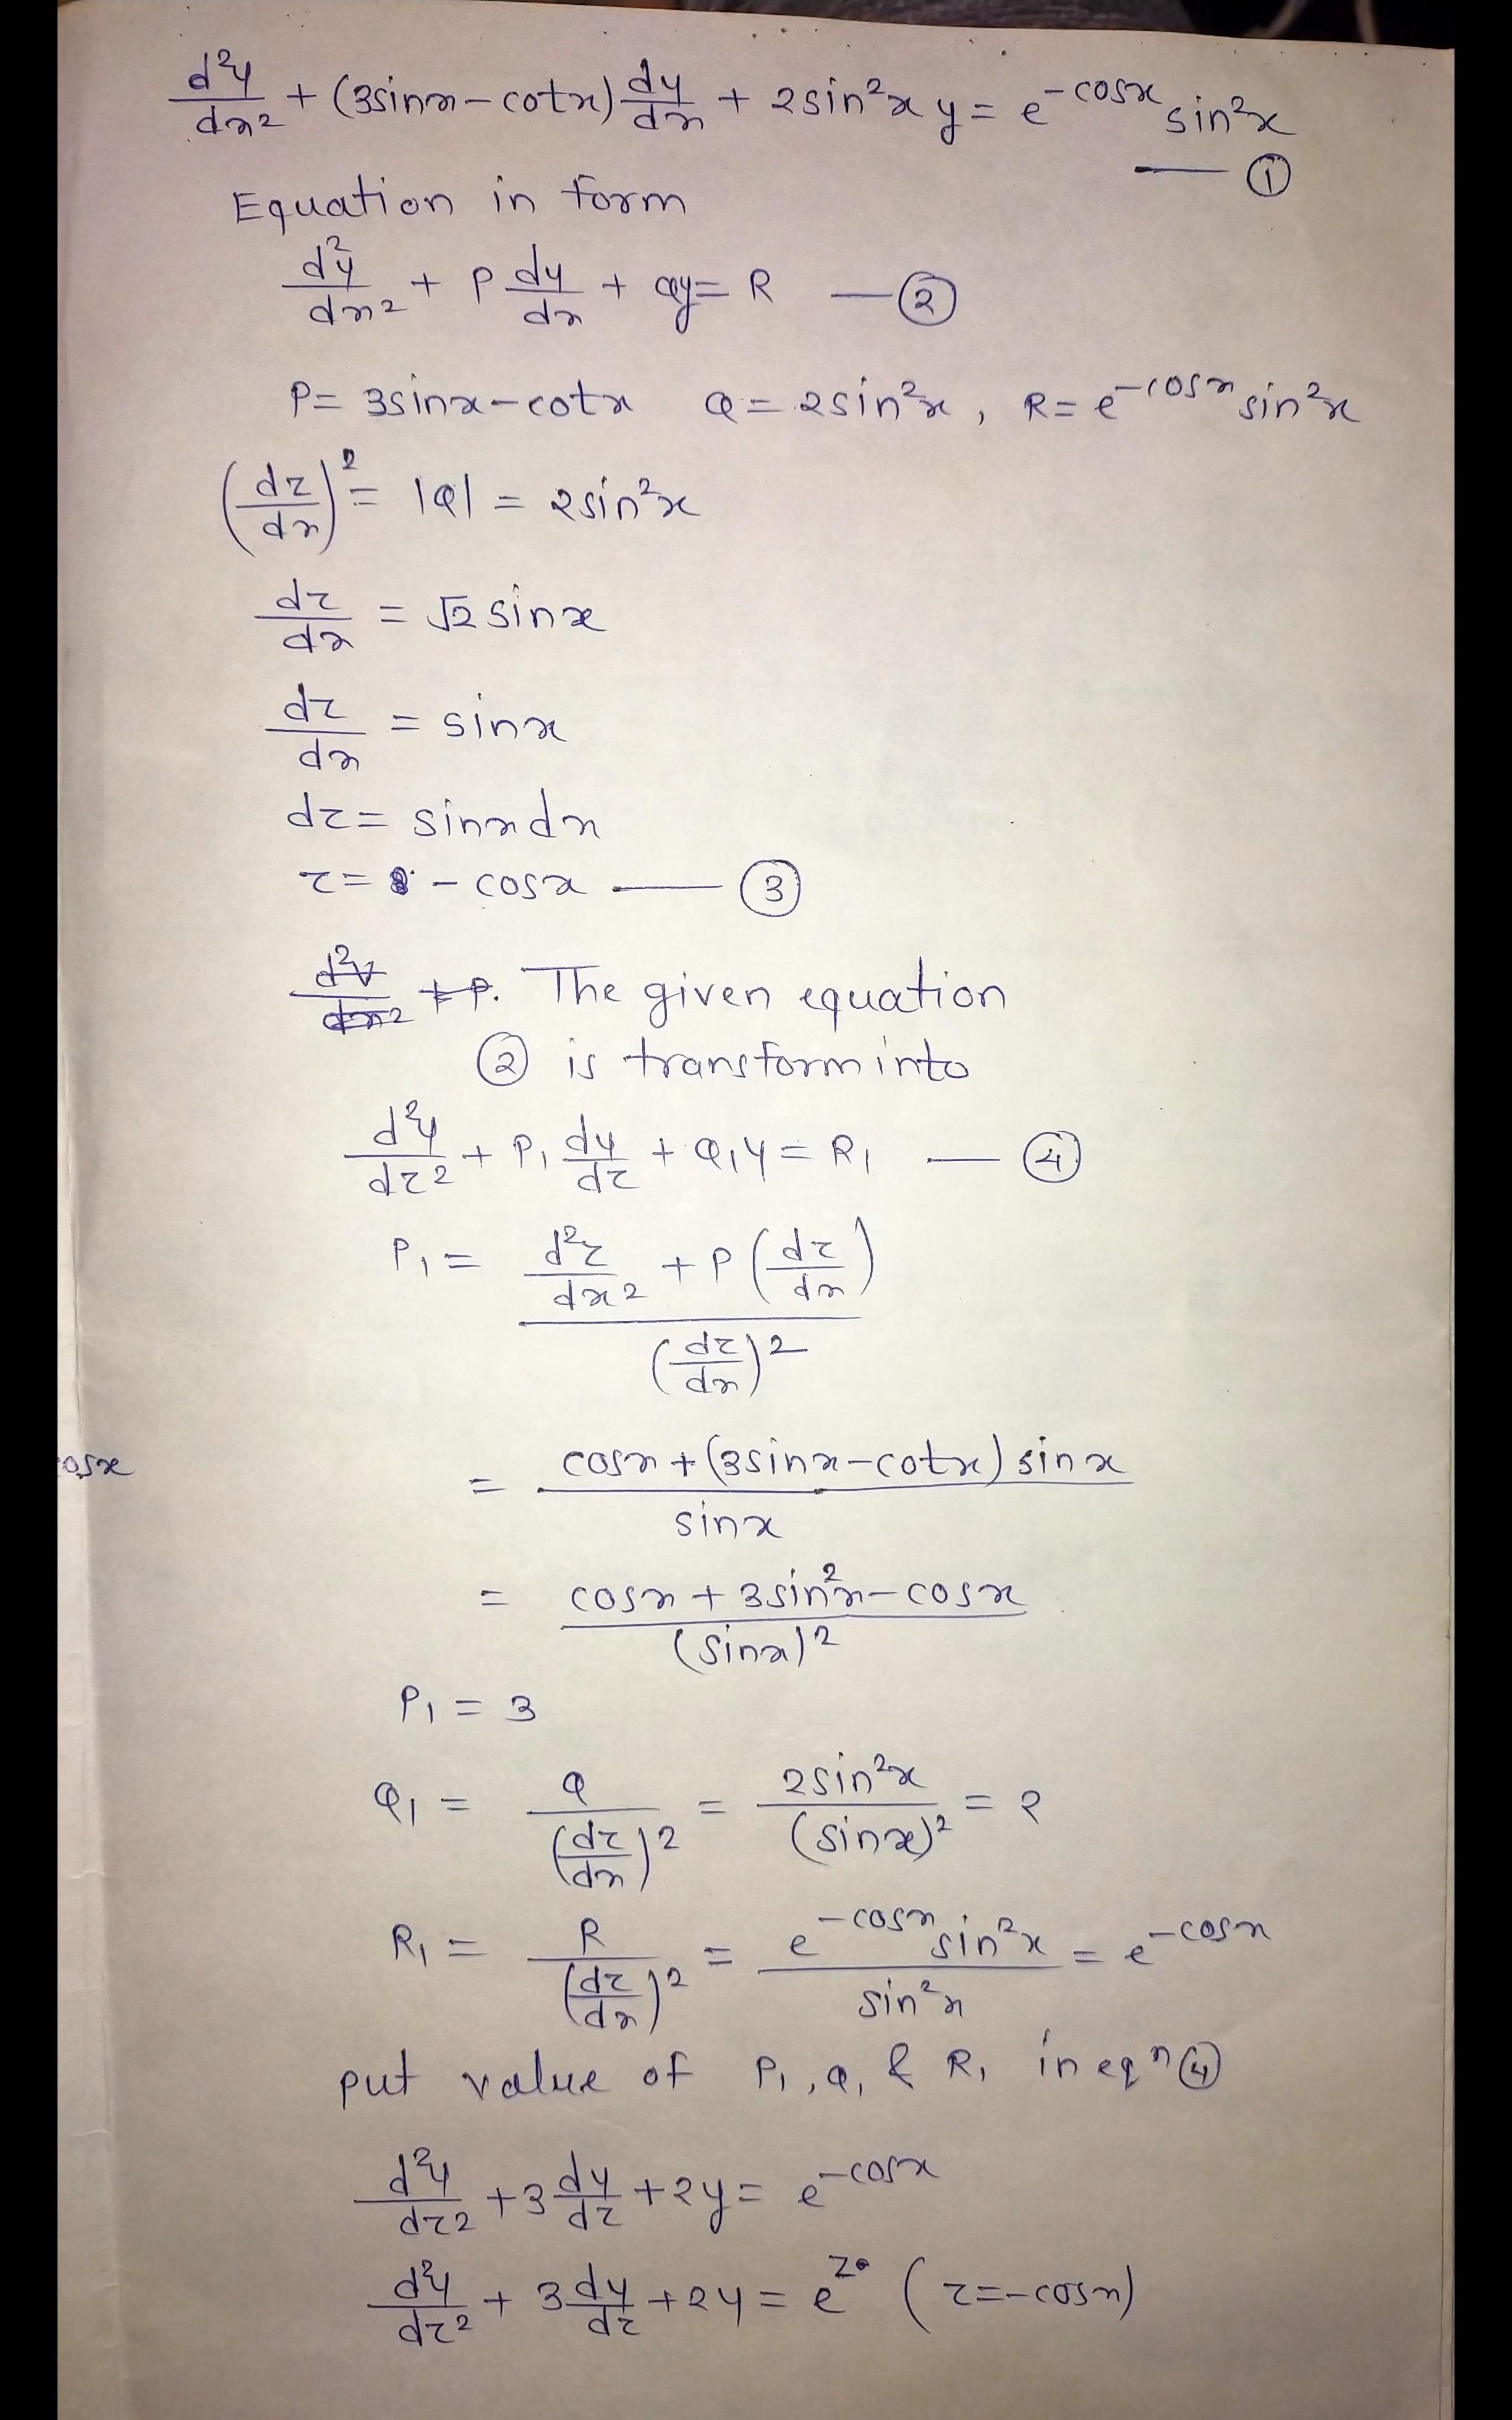 d²y/dx² + (3sinx - cotx) dy/dx + 2sin²x y = e^-cosx sin²x
— ①
Equation in form
d²y/dx² + P dy/dx + Qy = R — ②
P = 3sinx - cotx Q = 2sin²x , R = e^-cosx sin²x
(dz/dx)² = |Q| = 2sin²x
dz/dx = √2 sinx
dz/dx = sinx
dz = sinx dx
z = - cosx — ③
d²v/dx² + P. The given equation
② is transform into
d²y/dz² + P₁ dy/dz + Q₁y = R₁ — ④
P₁ = (d²z/dx² + P(dz/dx)) / (dz/dx)²
osx
= (cosx + (3sinx - cotx) sinx) / sinx
= (cosx + 3sin²x - cosx) / (sinx)²
P₁ = 3
Q₁ = Q / (dz/dx)² = 2sin²x / (sinx)² = 2
R₁ = R / (dz/dx)² = e^-cosx sin²x / sin²x = e^-cosx
put value of P₁, Q₁ & R₁ in eqⁿ ④
d²y/dz² + 3 dy/dz + 2y = e^-cosx
d²y/dz² + 3 dy/dz + 2y = e^z (z = -cosx)